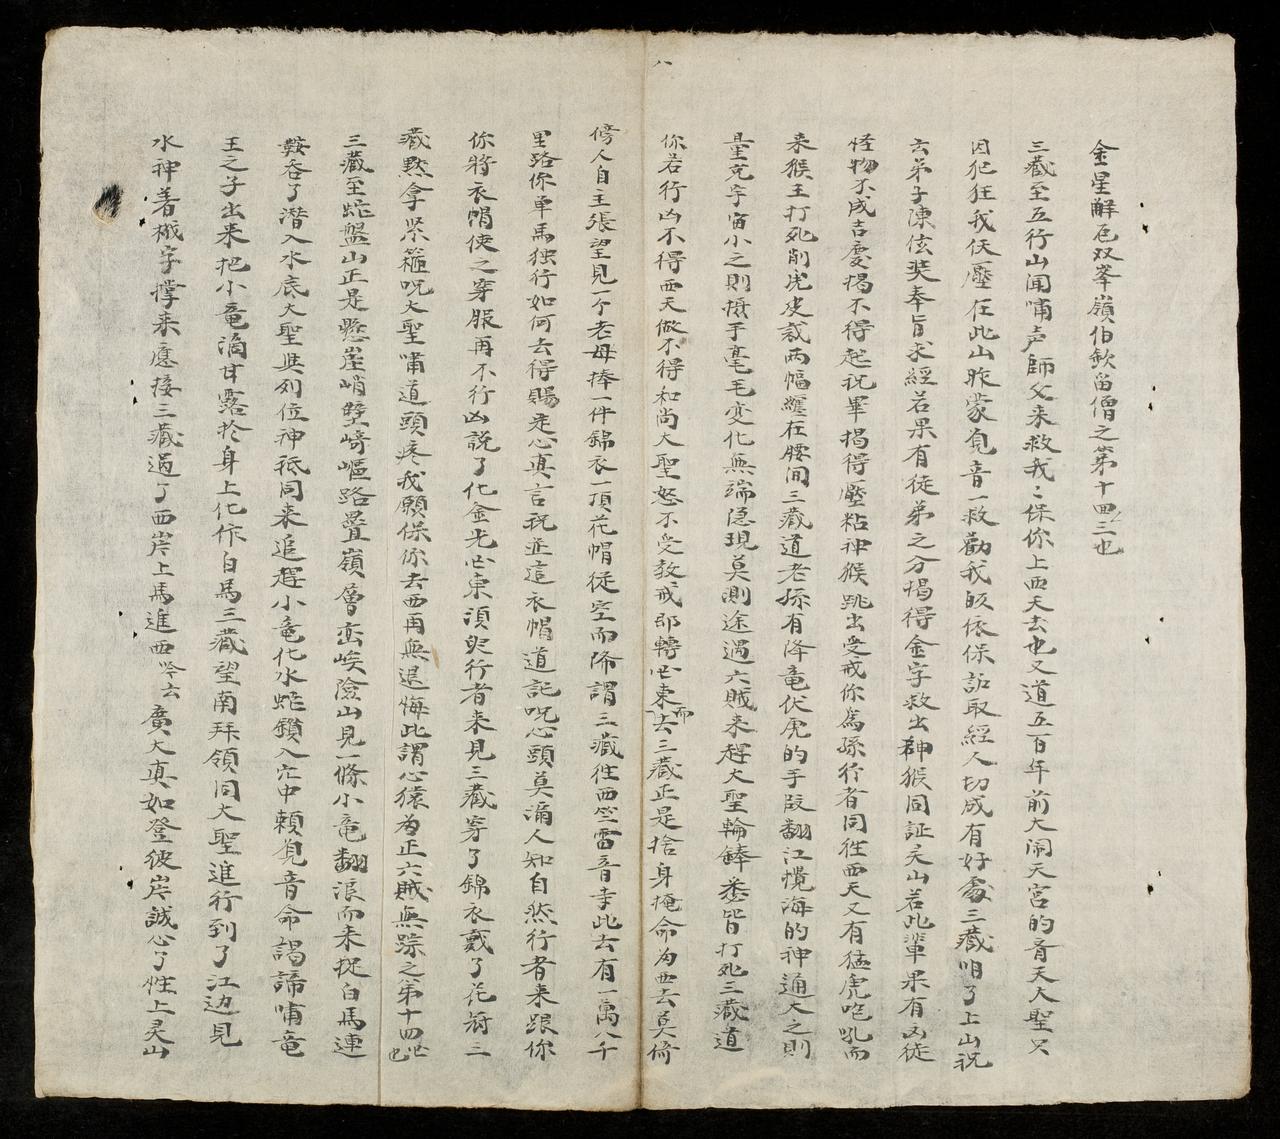 金星解厄双峯嶺伯欽留僧之第十四三也
三藏至五行山闻哺声師父来救我〻保你上西天去也又道五百年前大闹天宮的齐天大聖只
因犯狂我佛壓在此山昨蒙覌音一救勸我皈依保護取經人切成有好處三藏明了上山祝
云弟子陳佉奘奉旨求經若果有徒弟之分揭得金字救出神猴同証灵山若此輩果有凶徒
怪物不成吉慶揭不得起祝畢揭得壓粘神猴跳出受戒你為孫行者同徃西天又有猛虎咆吼而
来猴王打死削虎皮裁两幅纒在腰间三藏道老孫有降竜伏虎的手段翻江攪海的神通大之則
量充宇宙小之則攝于毫毛变化無端隐現莫測途遇六賊来趕大聖輪鋒悉皆打死三藏道
你若行凶不得西天做不得和尚大聖怒不受教〻戒即轉㞷東而去三藏正是捨身掩命为西去莫倚
傍人自主張望見一个老母捧一件錦衣一頂花帽從空而降謂三藏徃西竺雷音寺此去有一萬八千
里路你单馬独行如何去得賜定心真言祝並這衣帽道記呪心頭莫漏人知自然行者来跟你
你将衣帽使之穿服再不行凶説了化金光㞷東須臾行者来見三藏穿了錦衣戴了花帽三
藏黙拿紧箍呪大聖哺道頭疼我願保你去西再無退悔此謂心猿为正六賊無踪之第十四㞷也
三藏至蛇盤山正是懸崖峭壁崎嶇路疊嶺層峦峻險山見一條小竜翻浪而来捉白馬連
鞍吞了潜入水底大聖與列位神祇同来追趕小竜化水蛇鑽入穴中頼覌音命謁諦哺竜
王之子出来把小竜滴甘露於身上化作白馬三藏望南拜領同大聖進行到了江边見
水神着槭字撑来應接三藏過了西岸上馬進西吟云廣大真如登彼岸誠心了性上灵山
八